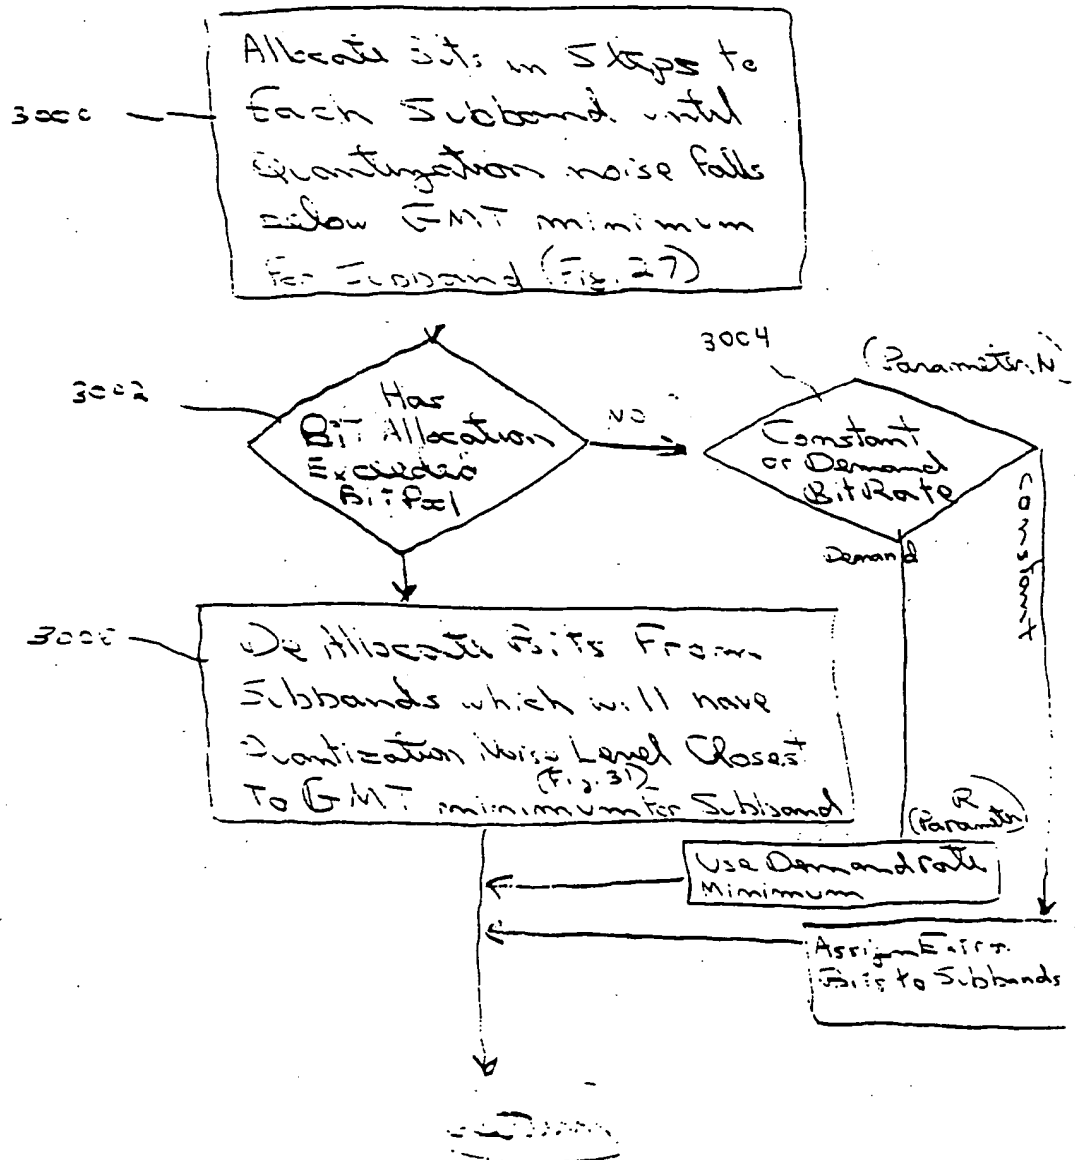 Allocate Bits in Steps to
Each Subband until
Quantization noise falls
below GMT minimum
For Subband (Fig. 27)
3000
3002
Has
Bit Allocation
Exceeded
Bit Pool
NO
3004
(Parameter N
Constant
or Demand
BitRate
Demand
Constant
DeAllocate Bits From
Subbands which will have
Quantization Noise Level Closest
(Fig. 31)
To GMT minimum for Subband
R
(Parameter)
Use Demand rate
Minimum
Assign
Bits to Subbands